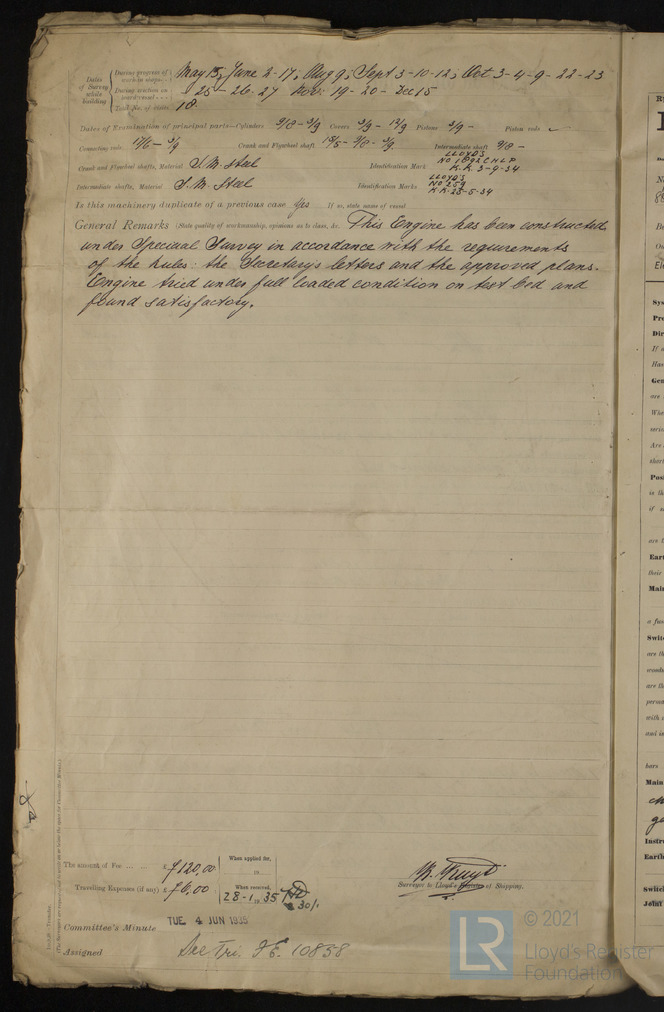 Dates of Survey while building
During progress of work in shops - - May 15, June 2-17, Aug 9, Sept 3-10-12, Oct 3-4-9-22-23
During erection on board vessel - - 25-26-27 Nov: 19-20- Dec 15
Total No. of visits 18
Dates of Examination of principal parts—Cylinders 9/8 - 3/9 Covers 3/9 - 12/9 Pistons 3/9 - Piston rods ✓
Connecting rods 17/6 - 3/9 Crank and Flywheel shaft 15/5 - 9/8 - 3/9 Intermediate shaft 9/8 -
Crank and Flywheel shafts, Material S.M. Steel Identification Mark LLOYD'S No 1892 C.H.L.P K.K. 3-9-34
Intermediate shafts, Material S.M. Steel Identification Marks LLOYD'S No 259 K.K. 28-5-34
Is this machinery duplicate of a previous case Yes If so, state name of vessel
General Remarks (State quality of workmanship, opinions as to class, &c. This Engine has been constructed
under Specical Survey in accordance with the requirements
of the Rules: the Secretary's letters and the approved plans.
Engine tried under full loaded condition on test bed and
found satisfactory.
The amount of Fee ... £ 7120,00 When applied for,
Travelling Expenses (if any) £ 76.00 When received, 28-1-1935
30/1
Surveyor to Lloyd's Register of Shipping.
Committee's Minute TUE. 4 JUN 1935
Assigned See Tri. F.E. 10858
© 2021
LR Lloyd's Register
Foundation